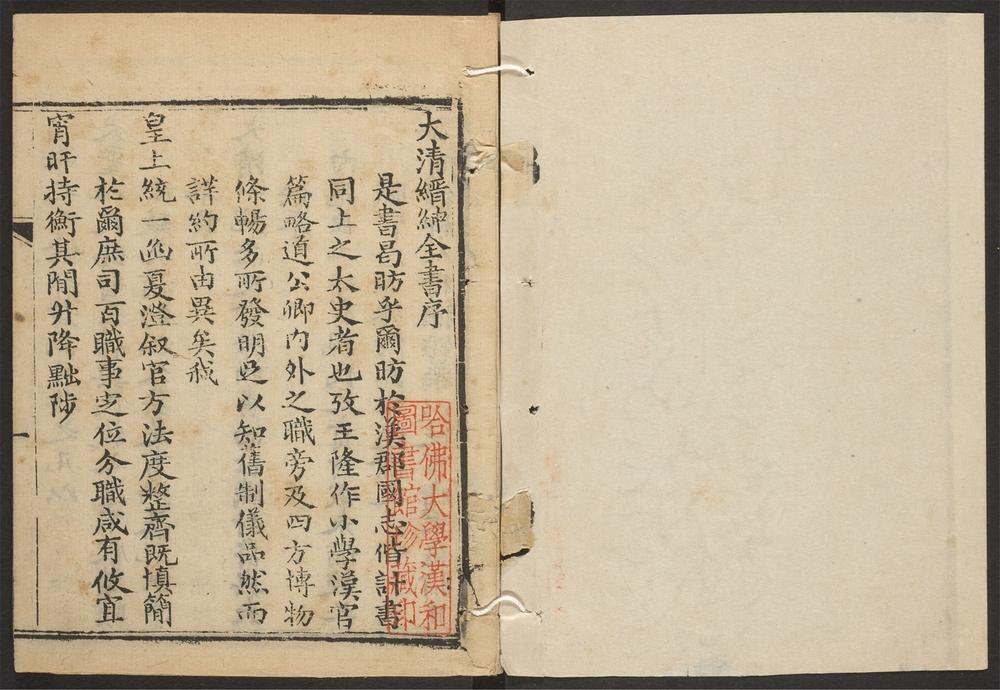 大清縉紳全書序
是書曷昉乎爾昉於漢郡國志偕計書
同上之太史者也攷王隆作小學漢官
篇略道公卿內外之職旁及四方博物
條暢多所發明足以知舊制儀品然而
詳約所由異矣我
皇上統一函夏澄叙官方法度整齊既慎簡
於爾庶司百職事定位分職咸有攸宜
宵旰持衡其間升降黜陟
哈佛大學漢和
圖書館珍藏印